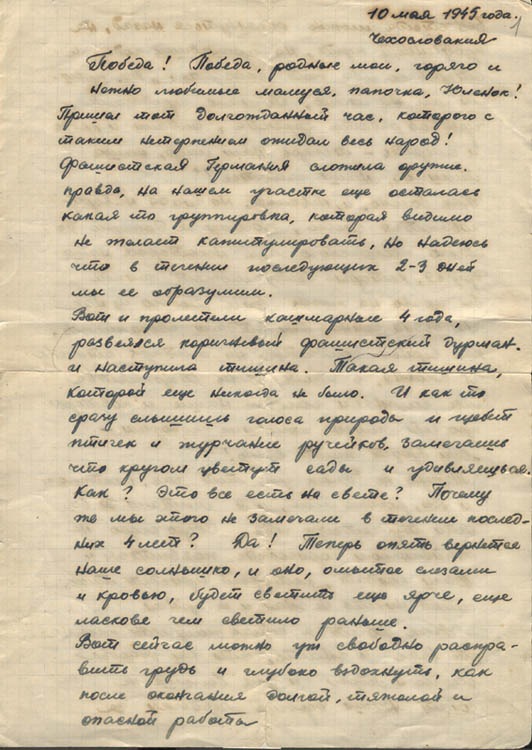 10 мая 1945 года.
Чехословакия
Победа! Победа, родные мои, горячо и
нежно любимые мамуся, папочка, Юленок!
Пришел тот долгожданный час, которого с
таким нетерпением ожидал весь народ!
Фашистская Германия сложила оружие.
правда, на нашем участке еще осталась
какая то группировка, которая видимо
не желает капитулировать, но надеюсь
что в течении последующих 2-3 дней
мы ее образумим.
Вот и пролетели кошмарные 4 года,
развеялся коричневый фашистский дурман.
и наступила тишина. Такая тишина,
которой еще никогда не было. И как то
сразу слышишь голоса природы и щебет
птичек и журчание ручейков, замечаешь
что кругом цветут сады и удивляешься.
Как? Это все есть на свете? Почему
же мы этого не замечали в течении послед-
них 4 лет? Да! Теперь опять вернется
наше солнышко, и оно, омытое слезами
и кровью, будет светить еще ярче, еще
ласковее чем светило раньше.
Вот сейчас можно уж свободно распра-
вить грудь и глубоко вздохнуть, как
после окончания долгой, тяжолой и
опасной работы